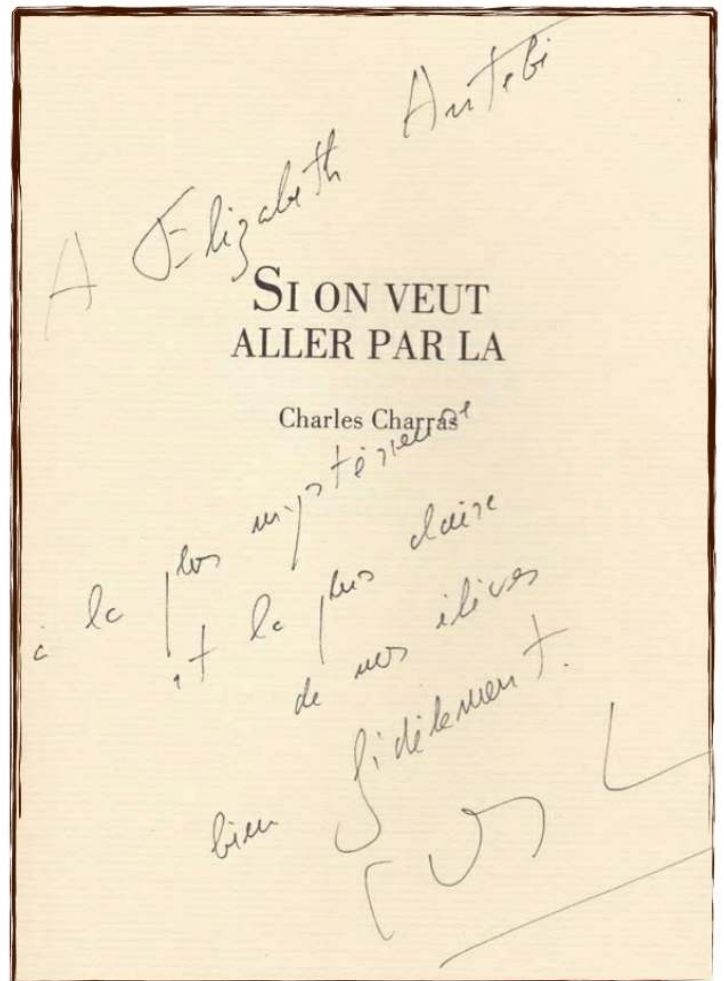 A Elizabeth Antebi
SI ON VEUT
ALLER PAR LA
Charles Charras
à la plus mystérieuse
et la plus claire
de nos élèves
bien fidèlement.